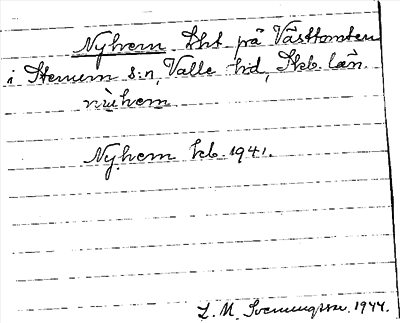 Nyhem lht på Västtomten
i Stenum s:n, Valle hd, Skb. län.
nỳhem
Nyhem kb. 1941.
L. M. Svenungsson. 1944.